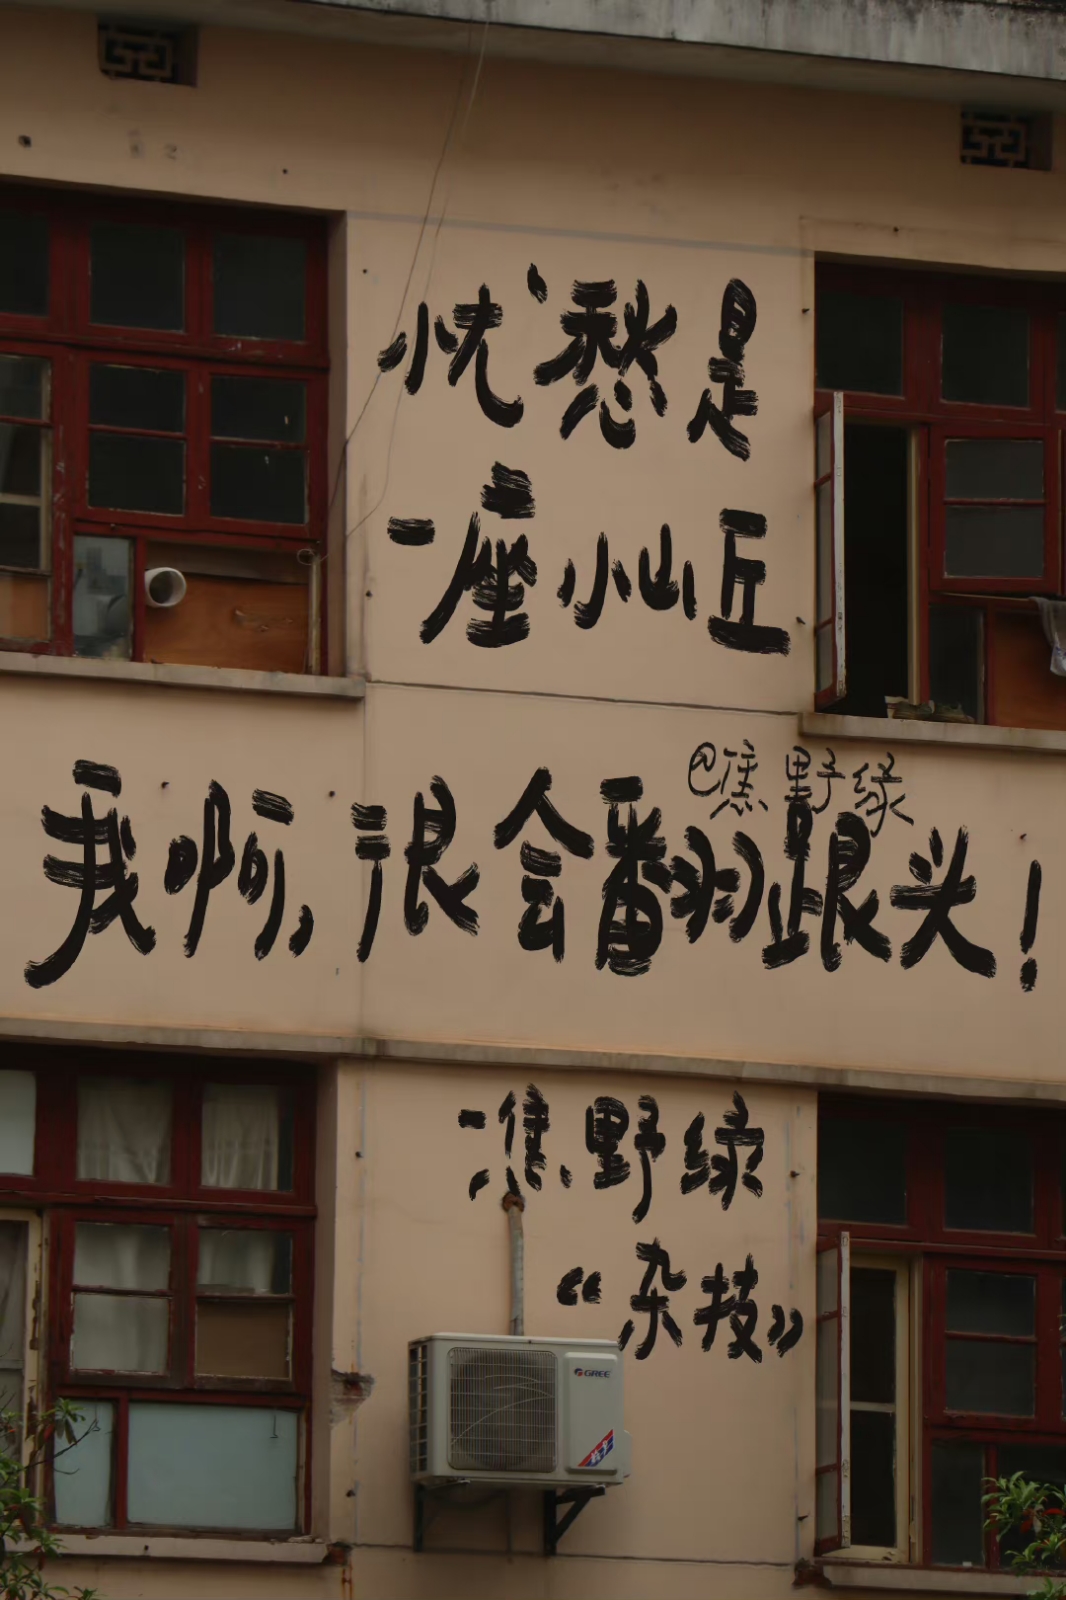 忧愁是
一座小山丘
@焦野绿
我啊,很会翻跟头!
一焦野绿
“杂技”
GREE